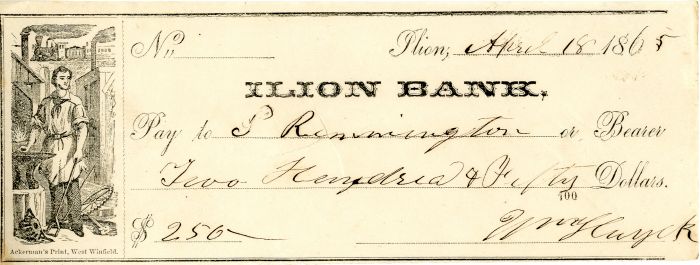 No.
Ilion, April 18 1865
ILION BANK.
Pay to P Remmington or Bearer
Two Hundred & Fifty Dollars.
100
$ 250
Ackerman's Print, West Winfield.